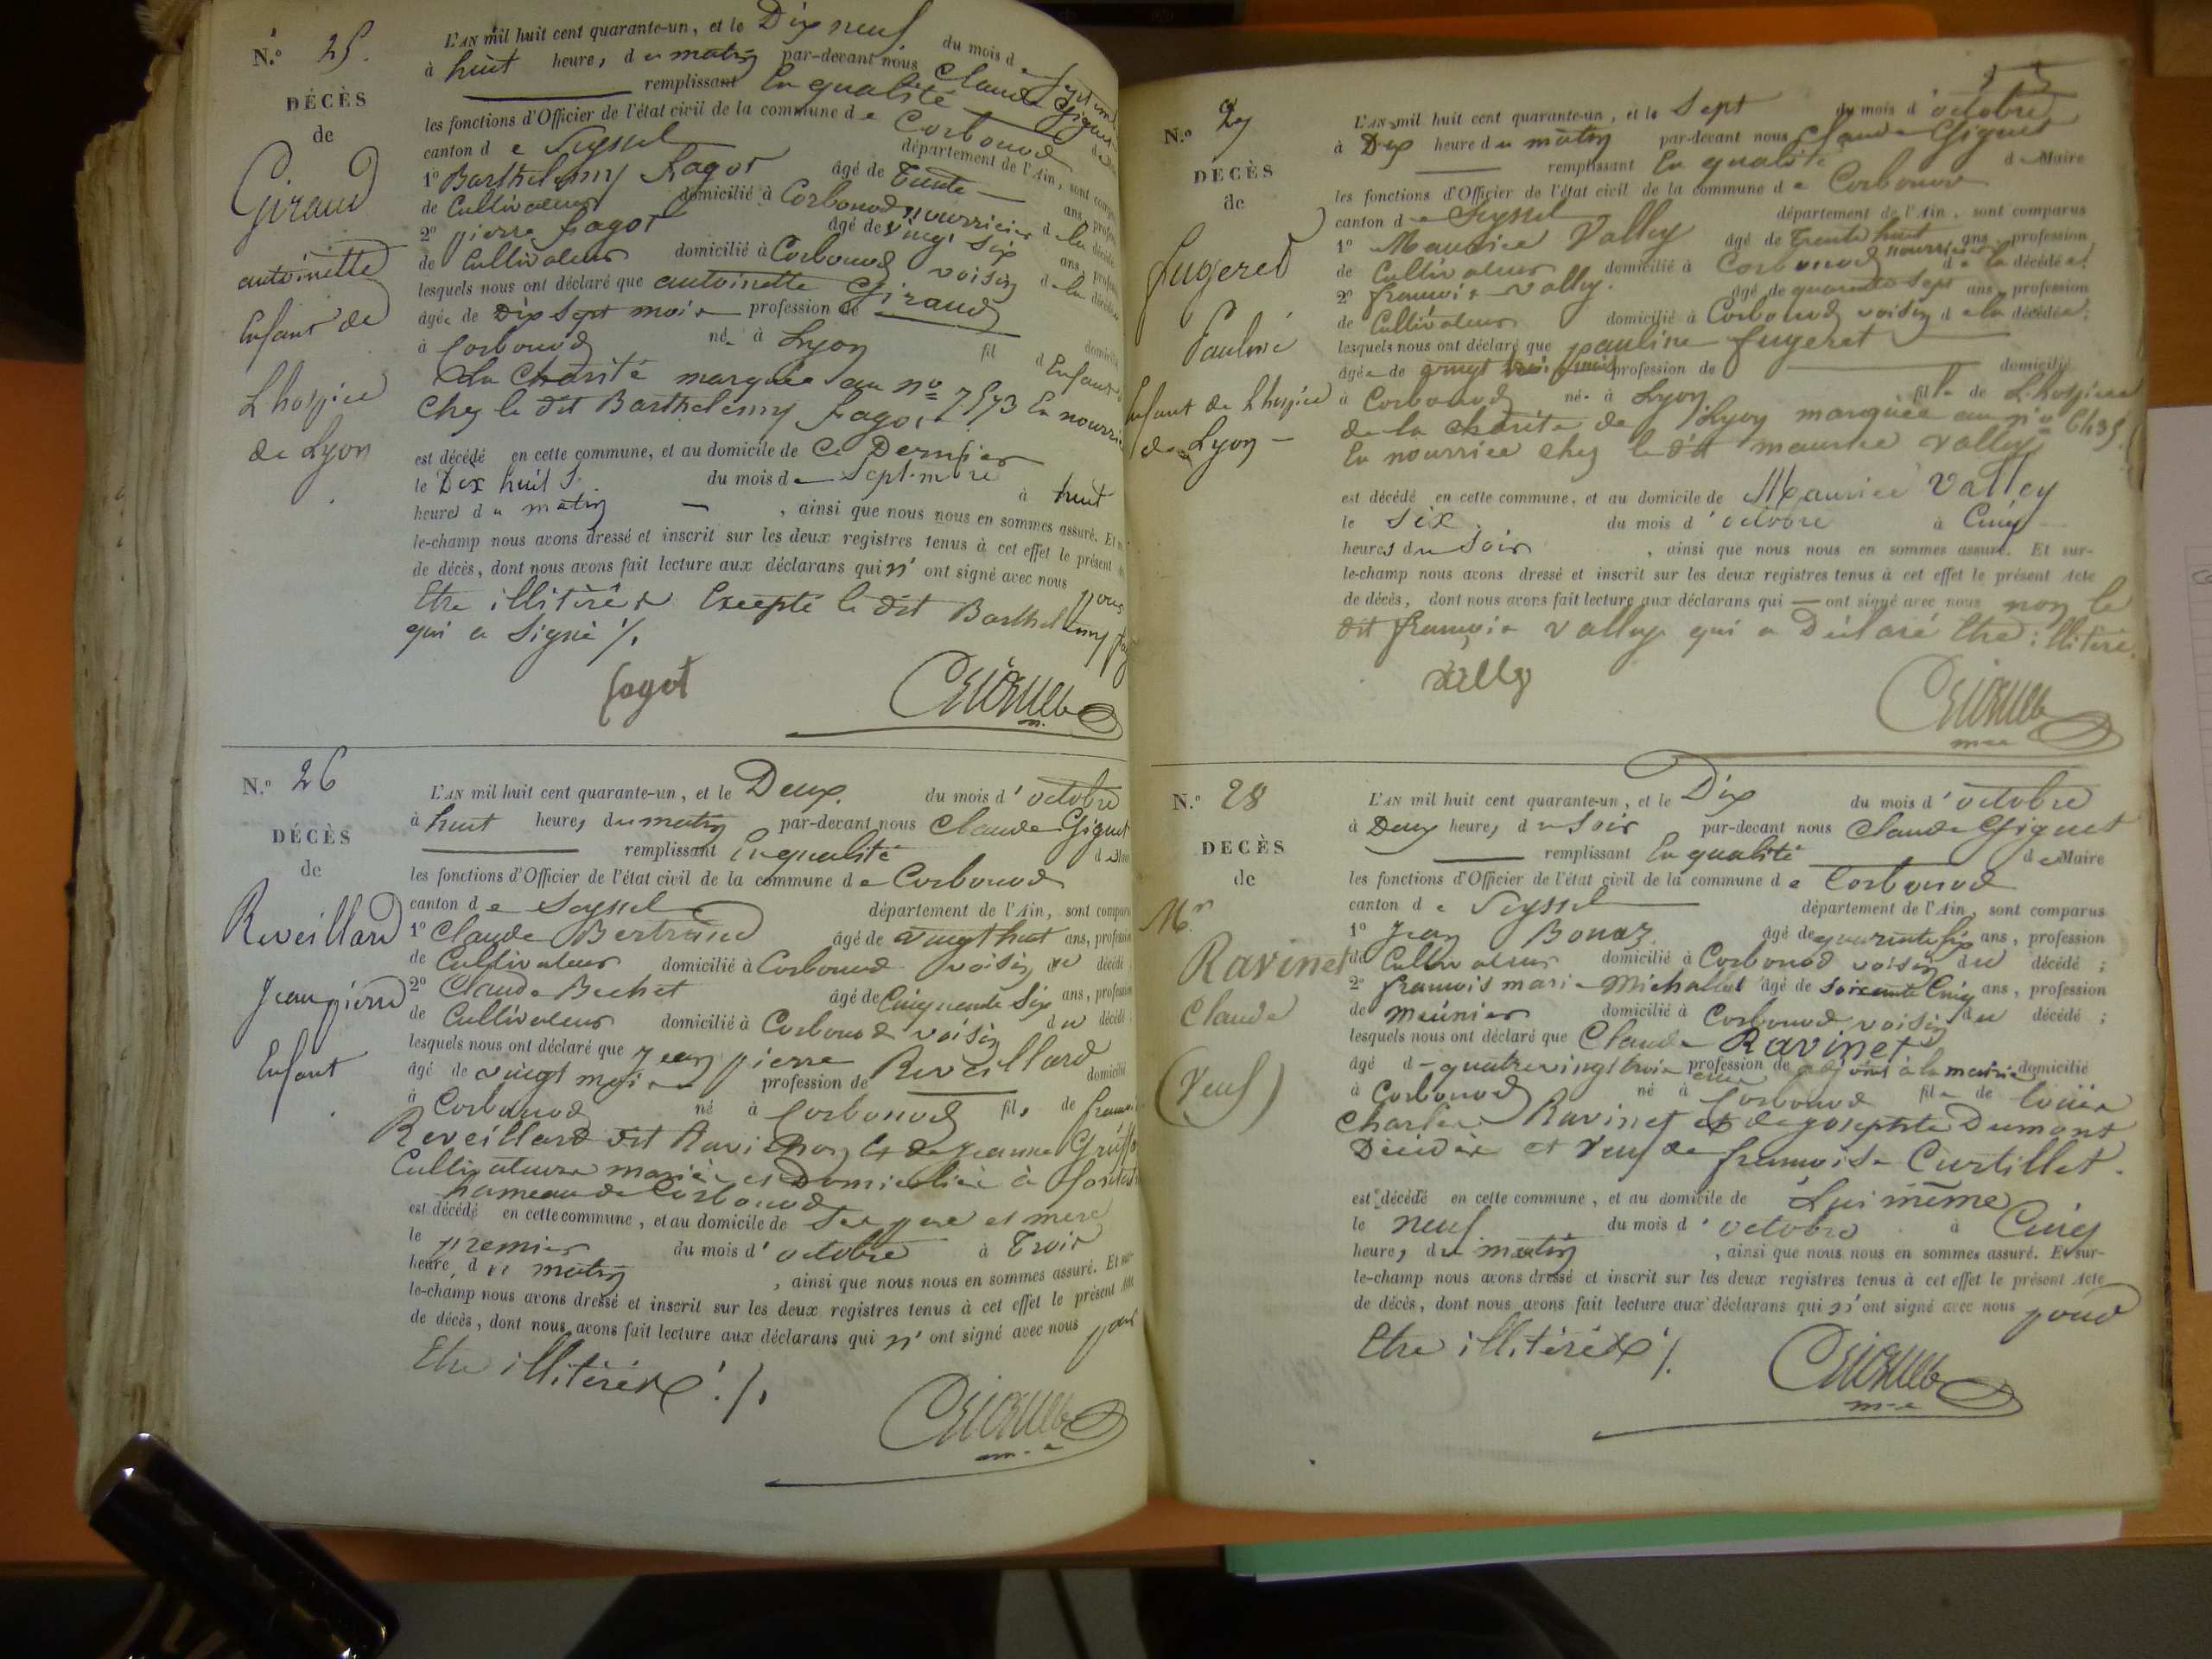 N.o 25.
DÉCÈS
de
Giraud
antoinette
Enfant de
L'hospice
de Lyon
L'AN mil huit cent quarante-un, et le Dix neuf du mois de
à huit heures du matin par-devant nous Claude Giguet
remplissant En qualité
les fonctions d'Officier de l'état civil de la commune de Corbonod
canton de Seyssel département de l'Ain, sont
1o Barthelemy fagot âgé de Trente ans,
de Cultivateur domicilié à Corbonod nourricier de la décédé
2o pierre fagot âgé de vingt six ans,
de Cultivateur domicilié à Corbonod voisin de la
lesquels nous ont déclaré que antoinette Giraud
âgée de Dix sept mois profession de
à Corbonod née à Lyon fil d'Enfant
La Charité marquée au no 7573 En
Chez le dit Barthelemy fagot
est décédé en cette commune, et au domicile de Ce Dernier
le Dix huit du mois de Septembre à huit
heures du matin , ainsi que nous nous en sommes assuré. Et
le-champ nous avons dressé et inscrit sur les deux registres tenus à cet effet le présent
de décès, dont nous avons fait lecture aux déclarans qui n'ont signé avec nous pour
Etre illitérés Excepté le dit Barthelemy
qui a Signé ./.
fagot
N.o 26
DÉCÈS
de
Reveillard
Jean pierre
Enfant
L'AN mil huit cent quarante-un, et le Deux du mois d'octobre
à huit heures du matin par-devant nous Claude Giguet
remplissant En qualité
les fonctions d'Officier de l'état civil de la commune de Corbonod
canton de Seyssel département de l'Ain, sont
1o Claude Bertrand âgé de vingt huit ans,
de Cultivateur domicilié à Corbonod voisin du décédé
2o Claude Bechet âgé de Cinquante Six ans,
de Cultivateur domicilié à Corbonod voisin du décédé
lesquels nous ont déclaré que Jean pierre Reveillard
âgé de vingt mois profession de domicilié
à Corbonod né à Corbonod fils de
Reveillard dit et de Jeanne
Cultivateurs mariés et Domiciliés à
hameau de Corbonod
est décédé en cette commune, et au domicile de Ses pere et mere
le premier du mois d'octobre à Trois
heure du matin , ainsi que nous nous en sommes assuré. Et
le-champ nous avons dressé et inscrit sur les deux registres tenus à cet effet le présent
de décès, dont nous avons fait lecture aux déclarans qui n'ont signé avec nous pour
Etre illitérés ./.
N.o 27
DECÈS
de
fugeret
Pauline
Enfant de L'hospice
de Lyon
L'AN mil huit cent quarante-un, et le Sept du mois d'octobre
à Dix heure du matin par-devant nous Claude Giguet
remplissant En qualité de Maire
les fonctions d'Officier de l'état civil de la commune de Corbonod
canton de Seyssel département de l'Ain, sont comparus
1o Maurice Valley âgé de Trente huit ans, profession
de Cultivateur domicilié à Corbonod nourricier de la décédée;
2o françois valley. âgé de quarante Sept ans, profession
de Cultivateur domicilié à Corbonod voisin de la décédée;
lesquels nous ont déclaré que pauline fugeret
âgée de vingt trois mois profession de domicilié
à Corbonod née à Lyon fille de L'hospice
de la charité de Lyon marquée au no
En nourrice chez le dit maurice valley
est décédé en cette commune, et au domicile de Maurice Valley
le Six du mois d'octobre à Cinq
heures du Soir , ainsi que nous nous en sommes assuré. Et sur-
le-champ nous avons dressé et inscrit sur les deux registres tenus à cet effet le présent Acte
de décès, dont nous avons fait lecture aux déclarans qui — ont signé avec nous non le
dit françois valley qui a Déclaré Etre illitéré.
N.o 28
DECÈS
de
Mr
Ravinet
Claude
(Veuf)
L'AN mil huit cent quarante-un, et le Dix du mois d'octobre
à Deux heures du Soir par-devant nous Claude Giguet
remplissant En qualité de Maire
les fonctions d'Officier de l'état civil de la commune de Corbonod
canton de Seyssel département de l'Ain, sont comparus
1o Jean Bonaz âgé de quarante six ans, profession
de Cultivateur domicilié à Corbonod voisin du décédé;
2o françois marie Michallet âgé de Soixante Cinq ans, profession
de meunier domicilié à Corbonod voisin du décédé;
lesquels nous ont déclaré que Claude Ravinet
âgé de quatre vingt trois profession de adjoint à la mairie domicilié
à Corbonod né à Corbonod fils de Louis
Charles Ravinet et de josephte Dumont
Décédés et Veuf de françoise Curtillet.
est décédé en cette commune, et au domicile de Lui même
le neuf du mois d'octobre à Cinq
heures du matin , ainsi que nous nous en sommes assuré. Et sur-
le-champ nous avons dressé et inscrit sur les deux registres tenus à cet effet le présent Acte
de décès, dont nous avons fait lecture aux déclarans qui n'ont signé avec nous pour
Etre illitérés ./.